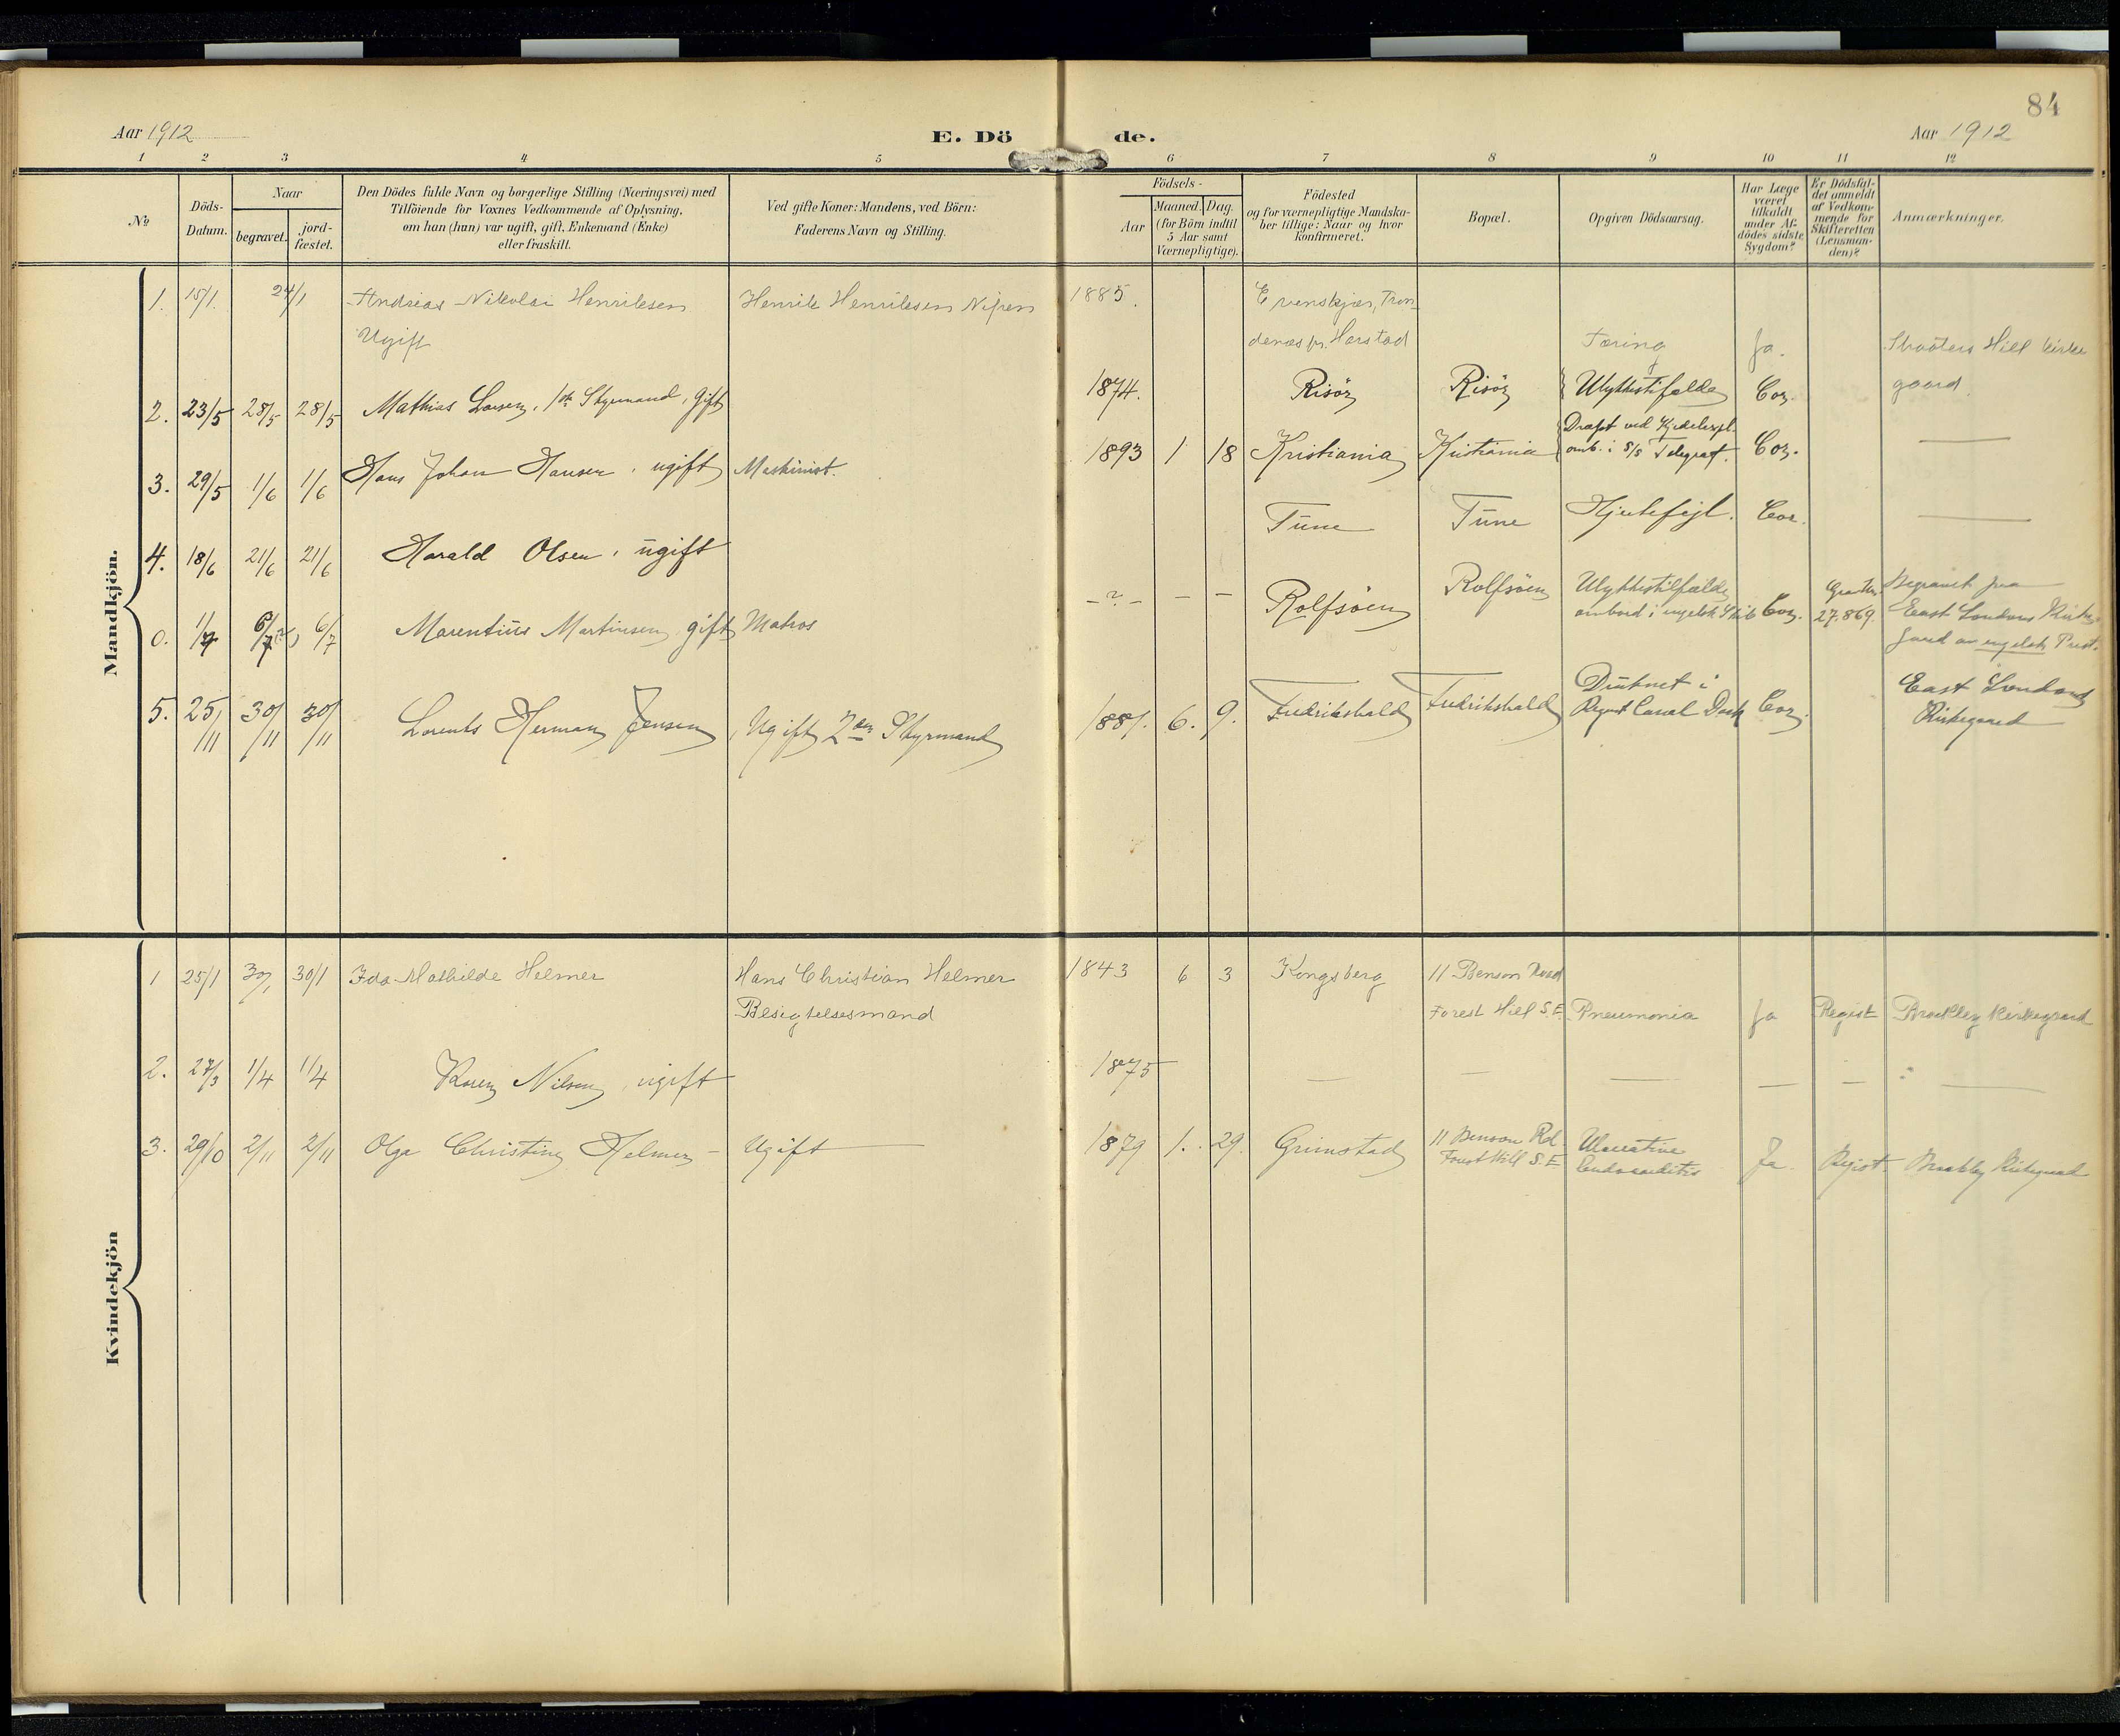 84
Aar 1912 E. Döde. Aar 1912
1 2 3 4 5 6 7 8 9 10 11 12
№ Döds-Datum. Naar begravet. jord-fæstet. Den Dödes fulde Navn og borgerlige Stilling (Næringsvei) med Tilföiende for Voxnes Vedkommende af Oplysning, om han (hun) var ugift, gift, Enkemand (Enke) eller fraskilt. Ved gifte Koner: Mandens, ved Börn: Faderens Navn og Stilling. Födsels- Aar Maaned. Dag. (for Börn indtil 5 Aar samt Værnepligtige). Födested og for værnepligtige Mandskaber tillige: Naar og hvor konfirmeret. Bopæl. Opgiven Dödsaarsag. Har Læge været tilkaldt under Afdödes sidste Sygdom? Er Dödsfaldet anmeldt af Vedkommende for Skifteretten (Lensmanden)? Anmærkninger.
Mandkjön.
1. 15/1. 24/1 Andreas Nikolai Henriksen Henrik Henriksen Nipen 1885. Evenskjær, Tron-
Ugift denæs pr. Harstad Tæring Ja. Hill Kirke
gaard.
2. 23/5 28/5 28/5 Mathias Larsen, 1ste Styrmand, Gift 1874. Risör Risör Ulykkestifælde Cor.
3. 29/5 1/6 1/6 Hans Johan Hansen, ugift Maskinist. 1893 1 18 Kristiania Kristiania Dræpt ved Kjedelexpl.
omb. i S/S Telegraf. Cor. —
4. 18/6 21/6 21/6 Harald Olsen, ugift Tune Tune Hjertefejl. Cor. —
0. 1/7 6/7 6/7 Marentius Martinsen, gift Matros - ? - - - Rolfsöen Rolfsöen Ulykkestilfælde
ombord i engelsk Skib Cor. 27.869. Begravet fra
East Londons Kirke-
gaard av engelsk Prest.
5. 25/11 30/11 30/11 Lorents Herman Jensen, Ugift 2den Styrmand 1881. 6. 9. Fredrikshald Fredrikshald Druknet i
Regent Canal Dock Cor. East Londons
Kirkegaard
Kvindekjön
1 25/1 30/1 30/1 Ida Mathilde Helmer Hans Christian Helmer 1843 6 3 Kongsberg 11 Benson Road
Besigtelsesmand Forest Hill S.E. Pneumonia Ja Regist Brockley Kirkegaard
2. 27/3 1/4 1/4 Karen Nilsen, ugift 1875 — — — — — —
3. 29/10 2/11 2/11 Olga Christine Helmer - Ugift — 1879 1. 29. Grimstad 11 Benson Rd
Forest Hill S.E. Ulcerative
Endocarditis Ja. Regist Brockley Kirkegaard